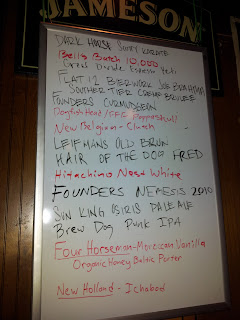 JAMESON
DARK HORSE
Bells Batch 10,000
Great Divide Espresso Yeti
FLAT 12 BIERWERX JOE BRAHMA
SOUTHERN TIER CREME BRULEE
FOUNDERS CURMUDGEON
Dogfish Head /
New Belgium - Clutch
LEIFMANS OLD BRUN
HAIR OF THE DOG FRED
Hitachino Nest White
FOUNDERS NEMESIS 2010
SUN KING OSIRIS PALE ALE
Brew Dog Punk IPA
Four Horseman - Mexican Vanilla
Organic Honey Baltic Porter
New Holland - Ichabod